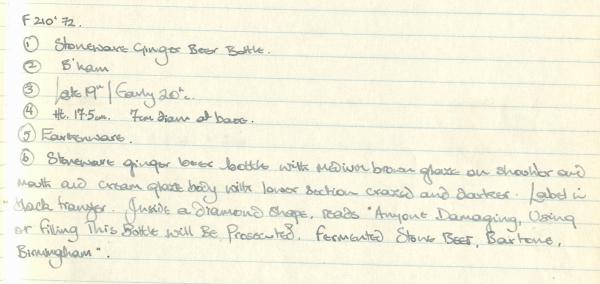 F210'72.
① Stoneware Ginger Beer Bottle.
② B'ham
③ Late 19th / Early 20th.
④ Ht. 17.5cm. 7cm diam at base.
⑤ Earthenware.
⑥ Stoneware ginger beer bottle with medium brown glaze on shoulder and
mouth and cream glaze body with lower section crazed and darker. Label in
black transfer. Inside a diamond shape, reads "Anyone Damaging, Using
or Filling This Bottle will Be Prosecuted. Fermented Stone Beer, Barton,
Birmingham".